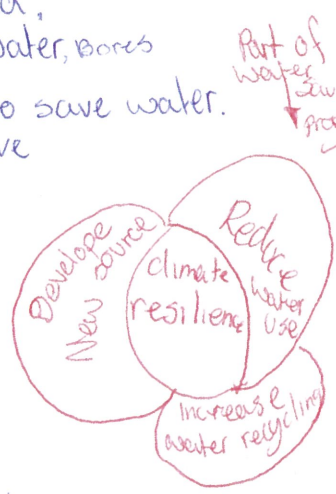 water, Bores
o save water.
ve
Part of
water
Develope
New source
climate
resilience
Reduce
water
use
Increase
water recycling